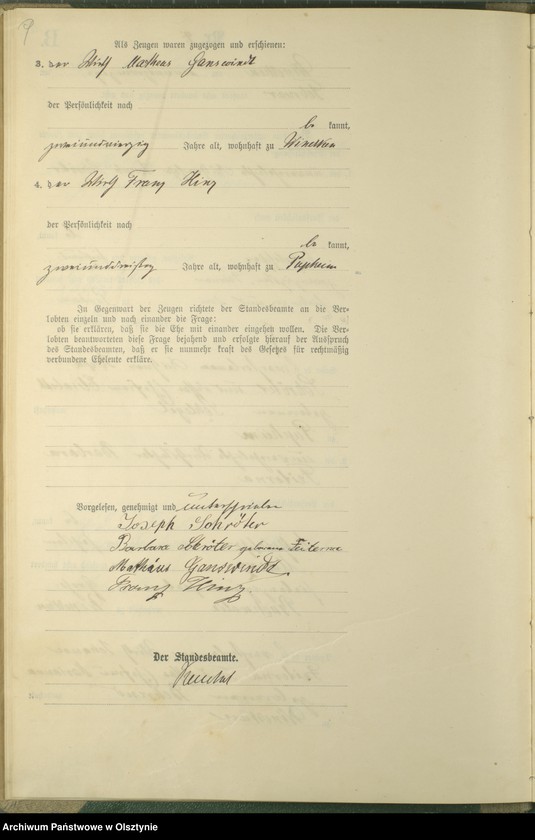 9
Als Zeugen waren zugezogen und erschienen:
3. der Wirth Matheus Ganswindt
der Persönlichkeit nach
be kannt,
zweiundvierzig Jahre alt, wohnhaft zu
4. der Wirth Franz Hinz
der Persönlichkeit nach
be kannt,
zweiunddreißig Jahre alt, wohnhaft zu
In Gegenwart der Zeugen richtete der Standesbeamte an die Ver-
lobten einzeln und nach einander die Frage:
ob sie erklären, daß sie die Ehe mit einander eingehen wollen. Die Ver-
lobten beantworteten diese Frage bejahend und erfolgte hierauf der Ausspruch
des Standesbeamten, daß er sie nunmehr kraft des Gesetzes für rechtmäßig
verbundene Eheleute erkläre.
Vorgelesen, genehmigt und unterschrieben
Joseph Schröter
Barbara Schröter geborene
Mathäus Ganswindt
Franz Hinz
Der Standesbeamte.
Archiwum Państwowe w Olsztynie